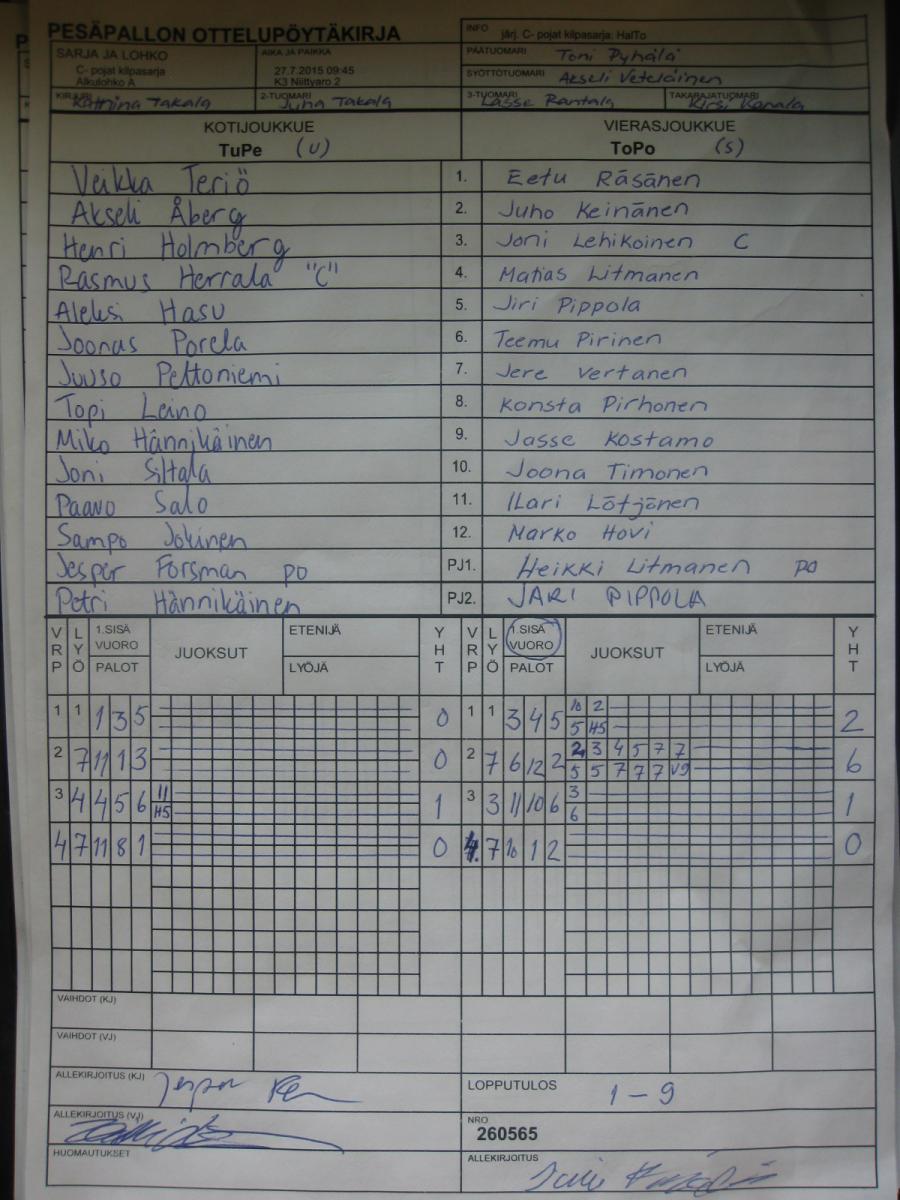 PESÄPALLON OTTELUPÖYTÄKIRJA
INFO järj. C- pojat kilpasarja: HalTo
SARJA JA LOHKO
C- pojat kilpasarja
Alkulohko A
AIKA JA PAIKKA
27.7.2015 09:45
K3 Niittyaro 2
PÄÄTUOMARI Toni Pyhälä
SYÖTTÖTUOMARI Akseli Veteläinen
KIRJURI Katriina Takala
2-TUOMARI Juha Takala
3-TUOMARI Lasse Rantala
TAKARAJATUOMARI Kirsi
KOTIJOUKKUE VIERASJOUKKUE
TuPe (U) ToPo (S)
Veikka Teriö 1. Eetu Räsänen
Akseli Åberg 2. Juho Keinänen
Henri Holmberg 3. Joni Lehikoinen C
Rasmus Herrala "C" 4. Matias Litmanen
Aleksi Hasu 5. Jiri Pippola
Joonas Porela 6. Teemu Pirinen
Juuso Peltoniemi 7. Jere Vertanen
Topi Leino 8. Konsta Pirhonen
Miko Hännikäinen 9. Jasse Kostamo
Joni Siltala 10. Joona Timonen
Paavo Salo 11. ILari Lötjönen
Sampo Jokinen 12. Marko Hovi
Jesper Forsman PO PJ1. Heikki Litmanen PO
Petri Hännikäinen PJ2. JARI PIPPOLA
VRP LYÖ 1.SISÄ VUORO PALOT JUOKSUT ETENIJÄ LYÖJÄ YHT VRP LYÖ 1.SISÄ VUORO PALOT JUOKSUT ETENIJÄ LYÖJÄ YHT
1 1 1 3 5 0 1 1 3 4 5 10 2 2
5 H5
2 7 11 1 3 0 2 7 6 12 2 2 3 4 5 7 7 6
5 5 7 7 7 V9
3 4 4 5 6 11 1 3 3 11 10 6 3 1
H5 6
4 7 11 8 1 0 4. 7 10 1 2 0
VAIHDOT (KJ)
VAIHDOT (VJ)
ALLEKIRJOITUS (KJ) LOPPUTULOS 1 – 9
ALLEKIRJOITUS (VJ) NRO
260565
HUOMAUTUKSET ALLEKIRJOITUS